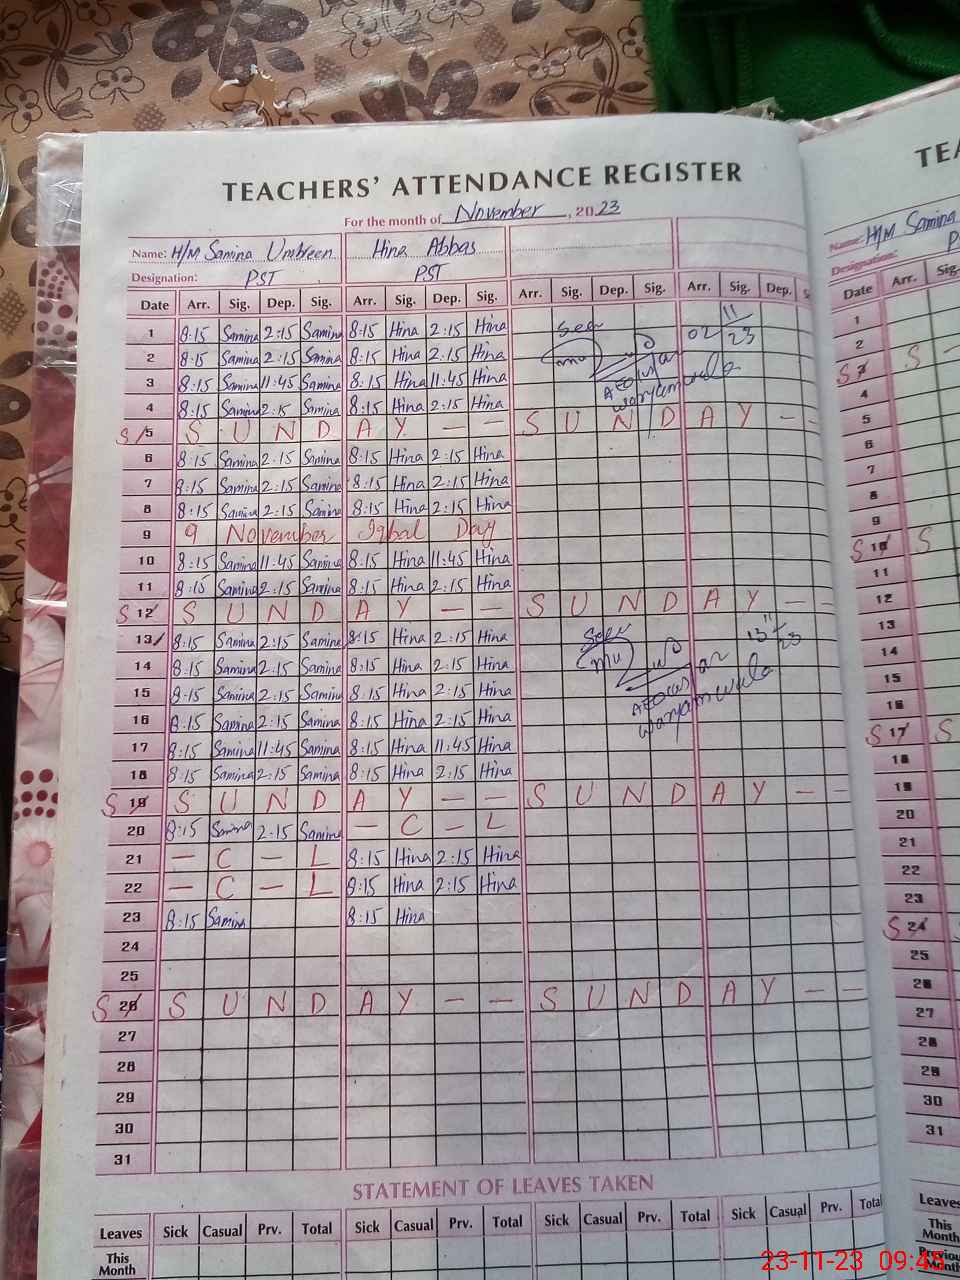 TEACHERS' ATTENDANCE REGISTER
For the month of November, 2023
Name: H/M Samina Umbreen Hina Abbas
Designation: PST PST
Date Arr. Sig. Dep. Sig. Arr. Sig. Dep. Sig. Arr. Sig. Dep. Sig. Arr. Sig. Dep. S
1 8:15 Samina 2:15 Samina 8:15 Hina 2:15 Hina
2 8:15 Samina 2:15 Samina 8:15 Hina 2:15 Hina
3 8:15 Samina 11:45 Samina 8:15 Hina 11:45 Hina
4 8:15 Samina 2:15 Samina 8:15 Hina 2:15 Hina
Seen
02 11/23
S 5 S U N D A Y - - S U N D A Y -
6 8:15 Samina 2:15 Samina 8:15 Hina 2:15 Hina
7 8:15 Samina 2:15 Samina 8:15 Hina 2:15 Hina
8 8:15 Samina 2:15 Samina 8:15 Hina 2:15 Hina
9 9 November Iqbal Day
10 8:15 Samina 11:45 Samina 8:15 Hina 11:45 Hina
11 8:15 Samina 2:15 Samina 8:15 Hina 2:15 Hina
S 12 S U N D A Y - - S U N D A Y - -
13 8:15 Samina 2:15 Samina 8:15 Hina 2:15 Hina
14 8:15 Samina 2:15 Samina 8:15 Hina 2:15 Hina
15 8:15 Samina 2:15 Samina 8:15 Hina 2:15 Hina
16 8:15 Samina 2:15 Samina 8:15 Hina 2:15 Hina
17 8:15 Samina 11:45 Samina 8:15 Hina 11:45 Hina
18 8:15 Samina 2:15 Samina 8:15 Hina 2:15 Hina
Seen
13 11/23
S 19 S U N D A Y - - S U N D A Y - -
20 8:15 Samina 2:15 Samina - C - L
21 - C - L 8:15 Hina 2:15 Hina
22 - C - L 8:15 Hina 2:15 Hina
23 8:15 Samina 8:15 Hina
24
25
S 26 S U N D A Y - - S U N D A Y - -
27
28
29
30
31
STATEMENT OF LEAVES TAKEN
Leaves Sick Casual Prv. Total Sick Casual Prv. Total Sick Casual Prv. Total Sick Casual Prv. Total
This Month
TEA
Name: H/M Samina
Designation:
Date Arr. Sig.
1
2
S 3 S -
4
5
6
7
8
9
S 10 S
11
12
13
14
15
16
S 17 S
18
19
20
21
22
23
S 24
25
26
27
28
29
30
31
Leaves
This Month
Previous Month
23-11-23 09:48